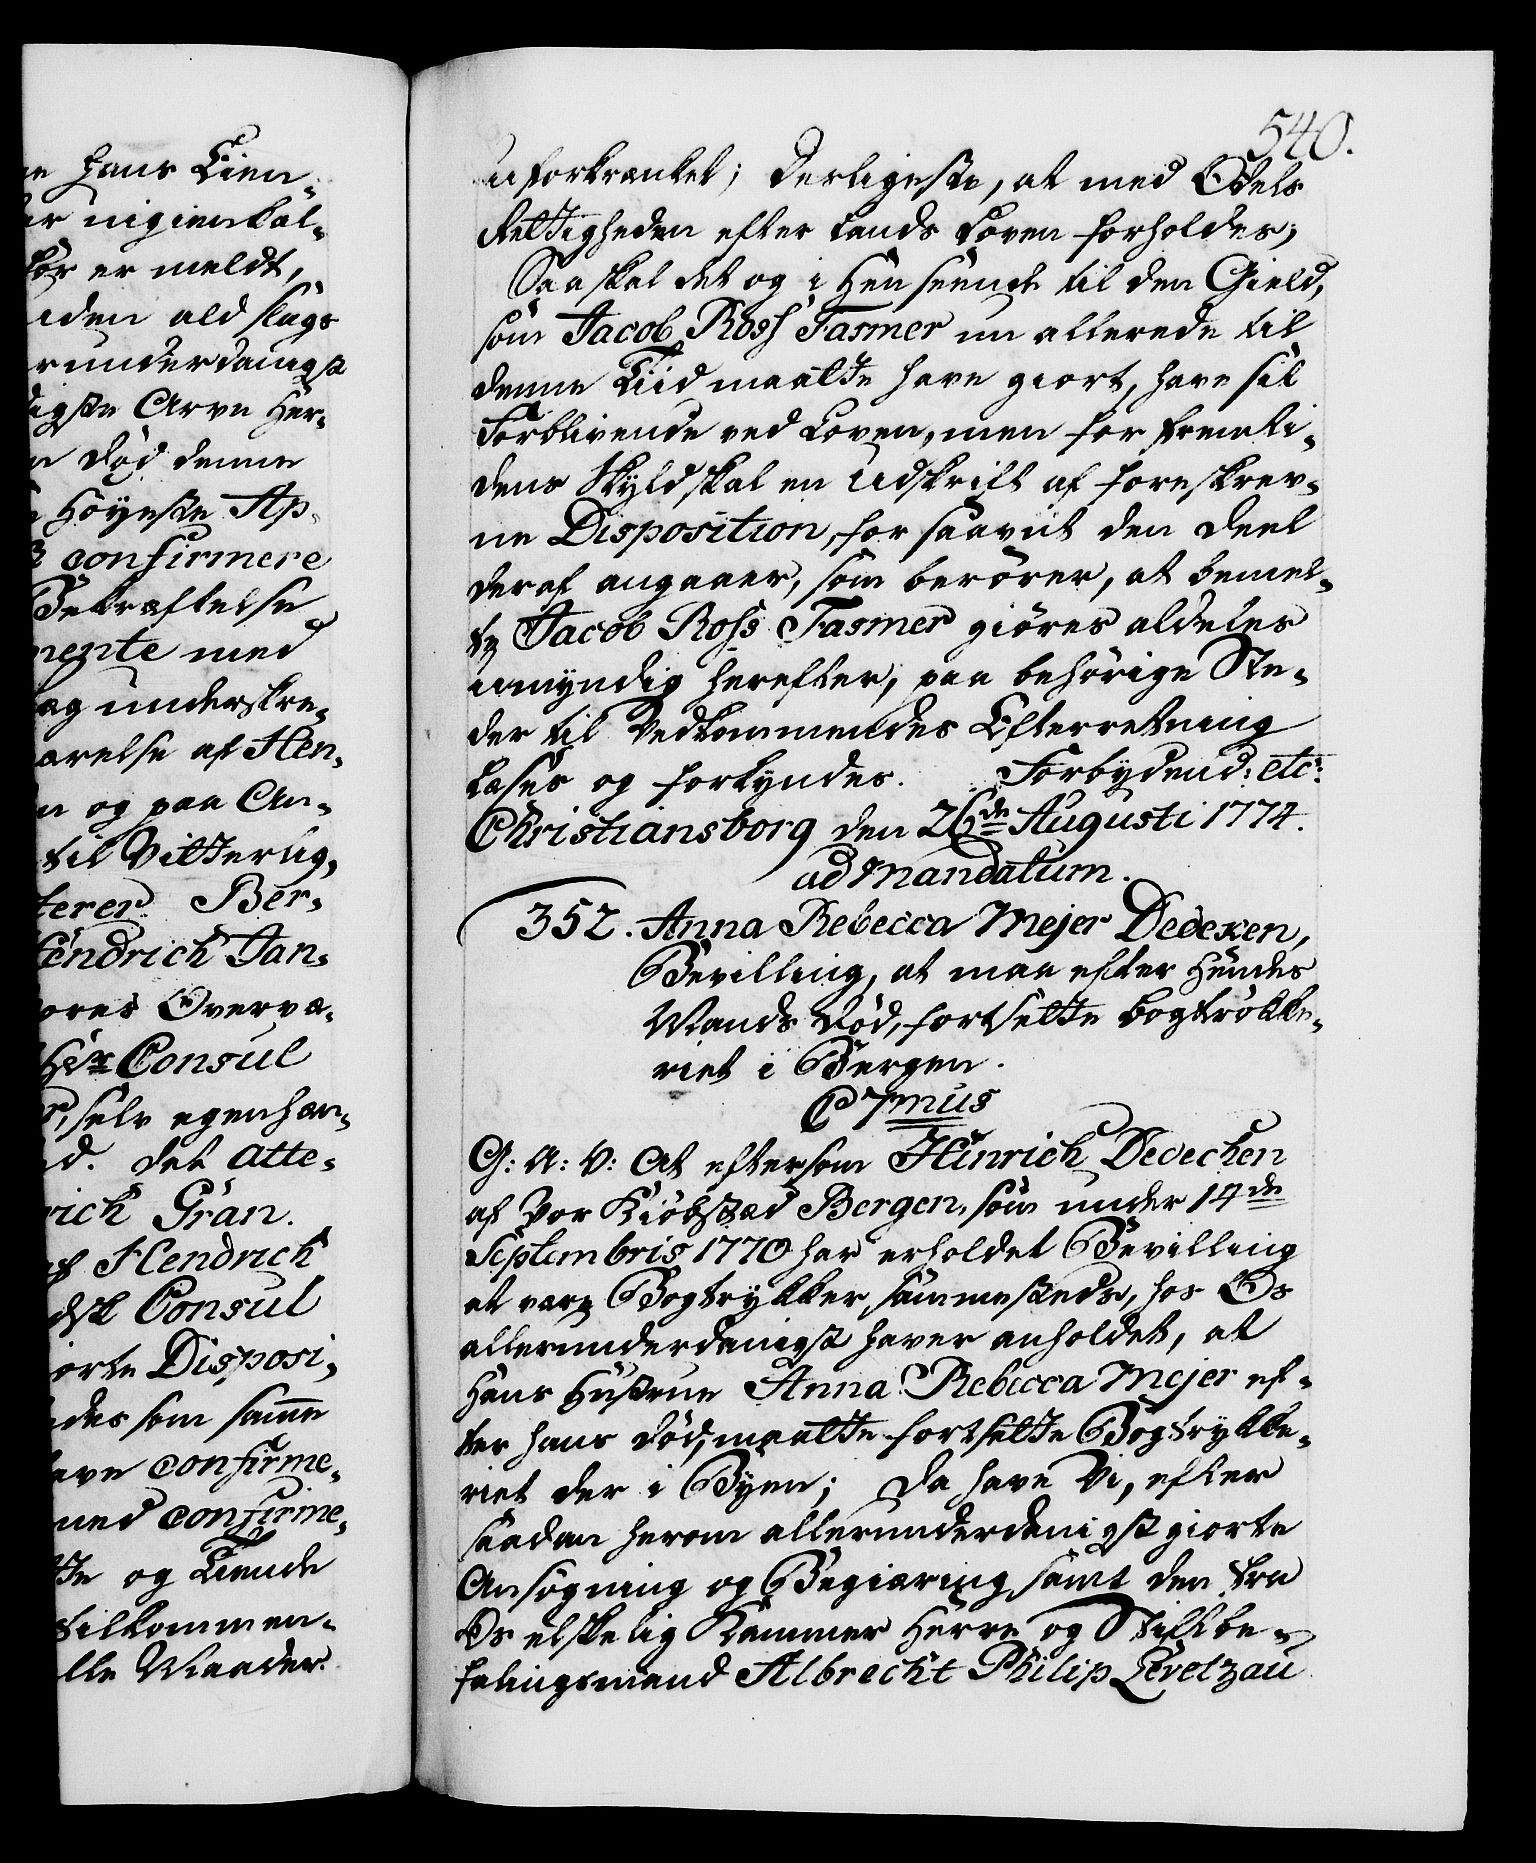 ne hans Tien-
er uigienkal-
før er meldt,
uden ald slags
erunderdanigst
digste Arve Her-
n død denne
e Høyeste Ap-
confirmere
Bekræftelse
mente med
og underskre-
ærelse af Hen-
n og paa An-
til Vitterlig-
terer Ber-
Hendrich Jan-
vores Overvæ-
Hr Consul
selv egenhæn-
d. det Atte-
rich Gran.
af Hendrich
dsk Consul
iorte Disposi-
des som samme
have confirme-
med confirme-
te og Tiende
tilkommen-
lle Maader.
540.
uforkrænket; Desligeste, at med Odels
Rettigheden efter Lands Loven forholdes;
Saa skal det og i Henseende til den Gield,
som Jacob Ross Fasmer nu allerede til
denne Tiid maatte have giort, have sit
Forblivende ved Loven, men for Fremti-
dens Skyld skal en Udskrift af foreskrev-
ne Disposition, for saavit den Deel
deraf angaaer, som berører, at bemel-
te Jacob Ross Fasmer giøres aldeles
umyndig herefter, paa behørige Ste-
der til Vedkommendes Efterretning
læses og forkyndes. Forbydend: etc:
Christiansborg den 26de Augusti 1774.
ad Mandatum.
352. Anna Rebecca Mejer Dedeken,
Bevilling, at maa efter Hendes
Mands Død, fortsette Bogtrøkke-
riet i Bergen.
C 7mus
G: A: V: At eftersom Hinrich Dedechen
af Vor Kiøbstæd Bergen, som under 14de
Septembris 1770 har erholdet Bevilling
at være Bogtrykker sammesteds, hos Os
allerunderdanigst haver anholdet, at
Hans Hustrue Anna Rebecca Mejer ef-
ter hans Død, maatte fortsette Bogtrykke-
riet der i Byen; Da have Vi, efter
saadan herom allerunderdanigst giorte
Ansøgning og Begiæring, samt den fra
Os elskelig Kammer Herre og Stiftbe-
falingsmand Albrecht Philip Levetzau